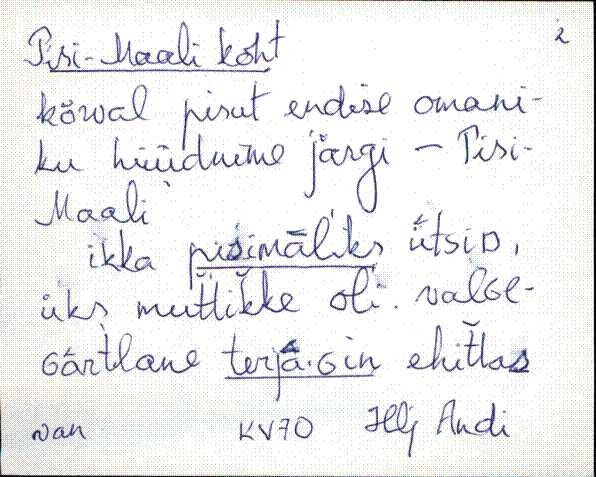 2
Pisi-Maali koht
kõrval pisut endise omani-
ku hüüdnime järgi – Pisi-
Maali
ikka pisimāĺiks ütsiD,
üks mut̆t̆ikke oĺi. valGe-
Gàrtlane terjä.Gin ehit̆tas
van KV70 Hlj Andi